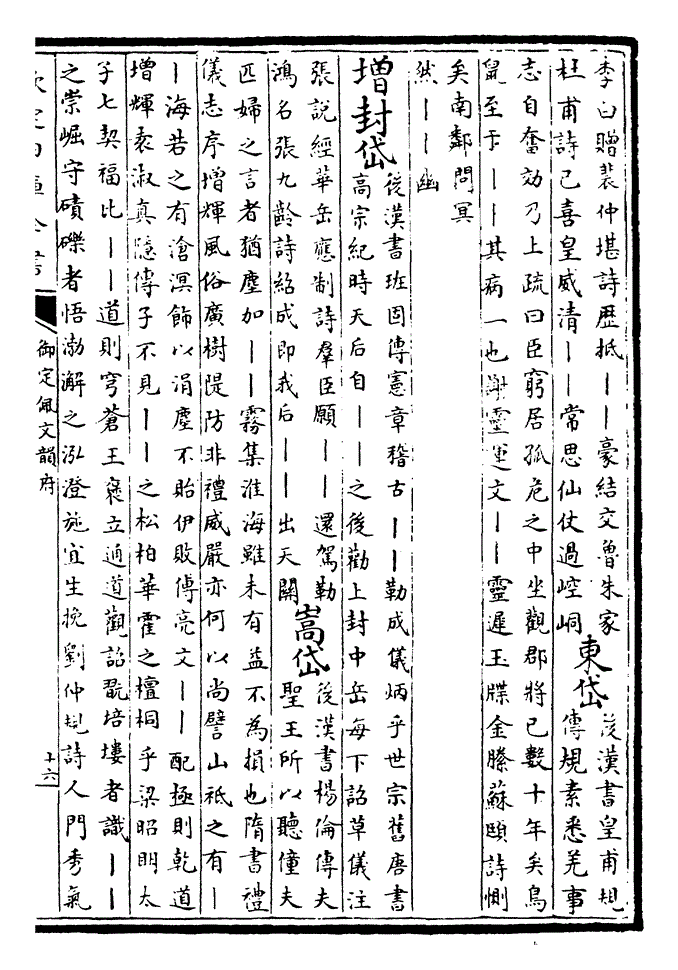 李白贈裴仲堪詩歴抵丨丨豪結交魯朱家
杜甫詩已喜皇威清丨丨常思仙仗過崆峒
東岱
後漢書皇甫規
傳規素悉羌事
志自奮効乃上疏曰臣窮居孤危之中坐觀郡將已數十年矣鳥
鼠至于丨丨其病一也謝靈運文丨丨靈遲玉牒金縢蘇頲詩惻
矣南鄰問冥
然丨丨幽
增封岱
後漢書班固傳憲章稽古丨丨勒成儀炳乎世宗舊唐書
高宗紀時天后自丨丨之後勸上封中岳每下詔草儀注
張說經華岳應制詩羣臣願丨丨還駕勒
鴻名張九齡詩紹成即我后丨丨出天關
嵩岱
後漢書楊倫傳夫
聖王所以聽僮夫
匹婦之言者猶塵加丨丨霧集淮海雖未有益不為損也隋書禮
儀志序增輝風俗廣樹隄防非禮威嚴亦何以尚譬山祗之有丨
丨海若之有滄溟飾以涓塵不貽伊敗傅亮文丨丨配極則乾道
增輝袁淑真隱傳子不見丨丨之松柏華霍之檀桐乎梁昭明太
子七契福比丨丨道則穹蒼王襃立通道觀詔翫培塿者識丨丨
之崇崛守磧礫者悟渤澥之泓澄施宜生挽劉仲規詩人門秀氣
欽定四庫全書
御定佩文韻府
十六